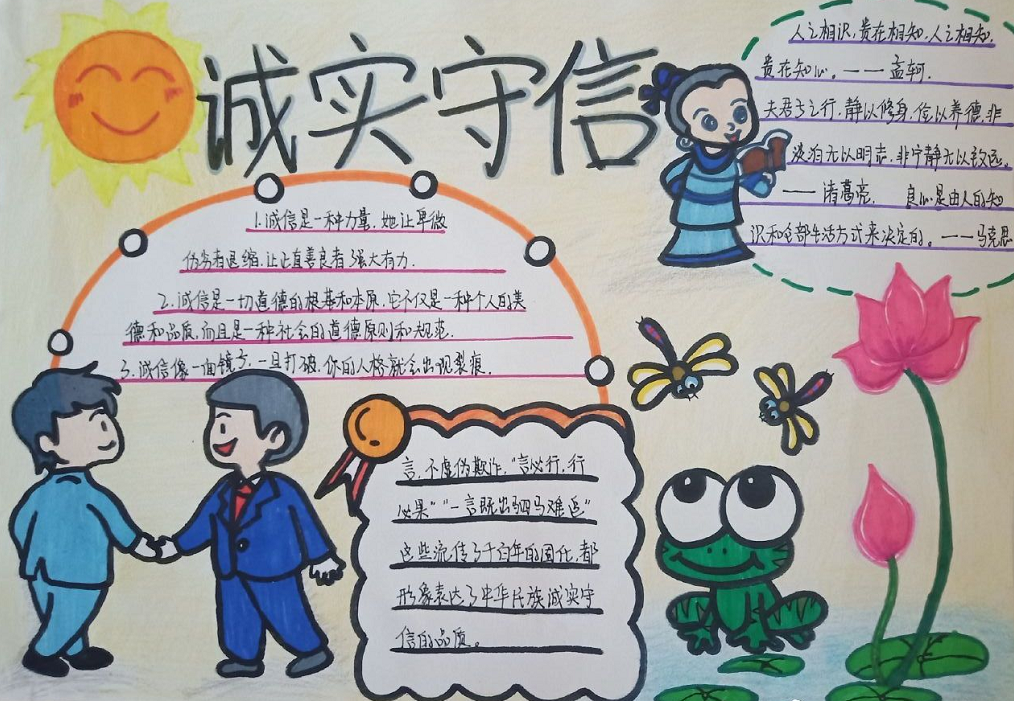 诚实守信
人之相识，贵在相知，人之相知，
贵在知心。——孟轲．
夫君子之行，静以修身，俭以养德，非
淡泊无以明志，非宁静无以致远。
——诸葛亮． 良心是由人的知
识和全部生活方式来决定的。——马克思
1.诚信是一种力量，她让卑微
伪劣者退缩，让正直善良者强大有力．
2.诚信是一切道德的根基和本原，它不仅是一种个人的美
德和品质，而且是一种社会的道德原则和规范．
3.诚信像一面镜子，一旦打破，你的人格就会出现裂痕．
言，不虚伪欺诈，"言必行，行
必果""一言既出驷马难追"
这些流传了千百年的固化，都
形象表达了中华民族诚实守
信的品质。